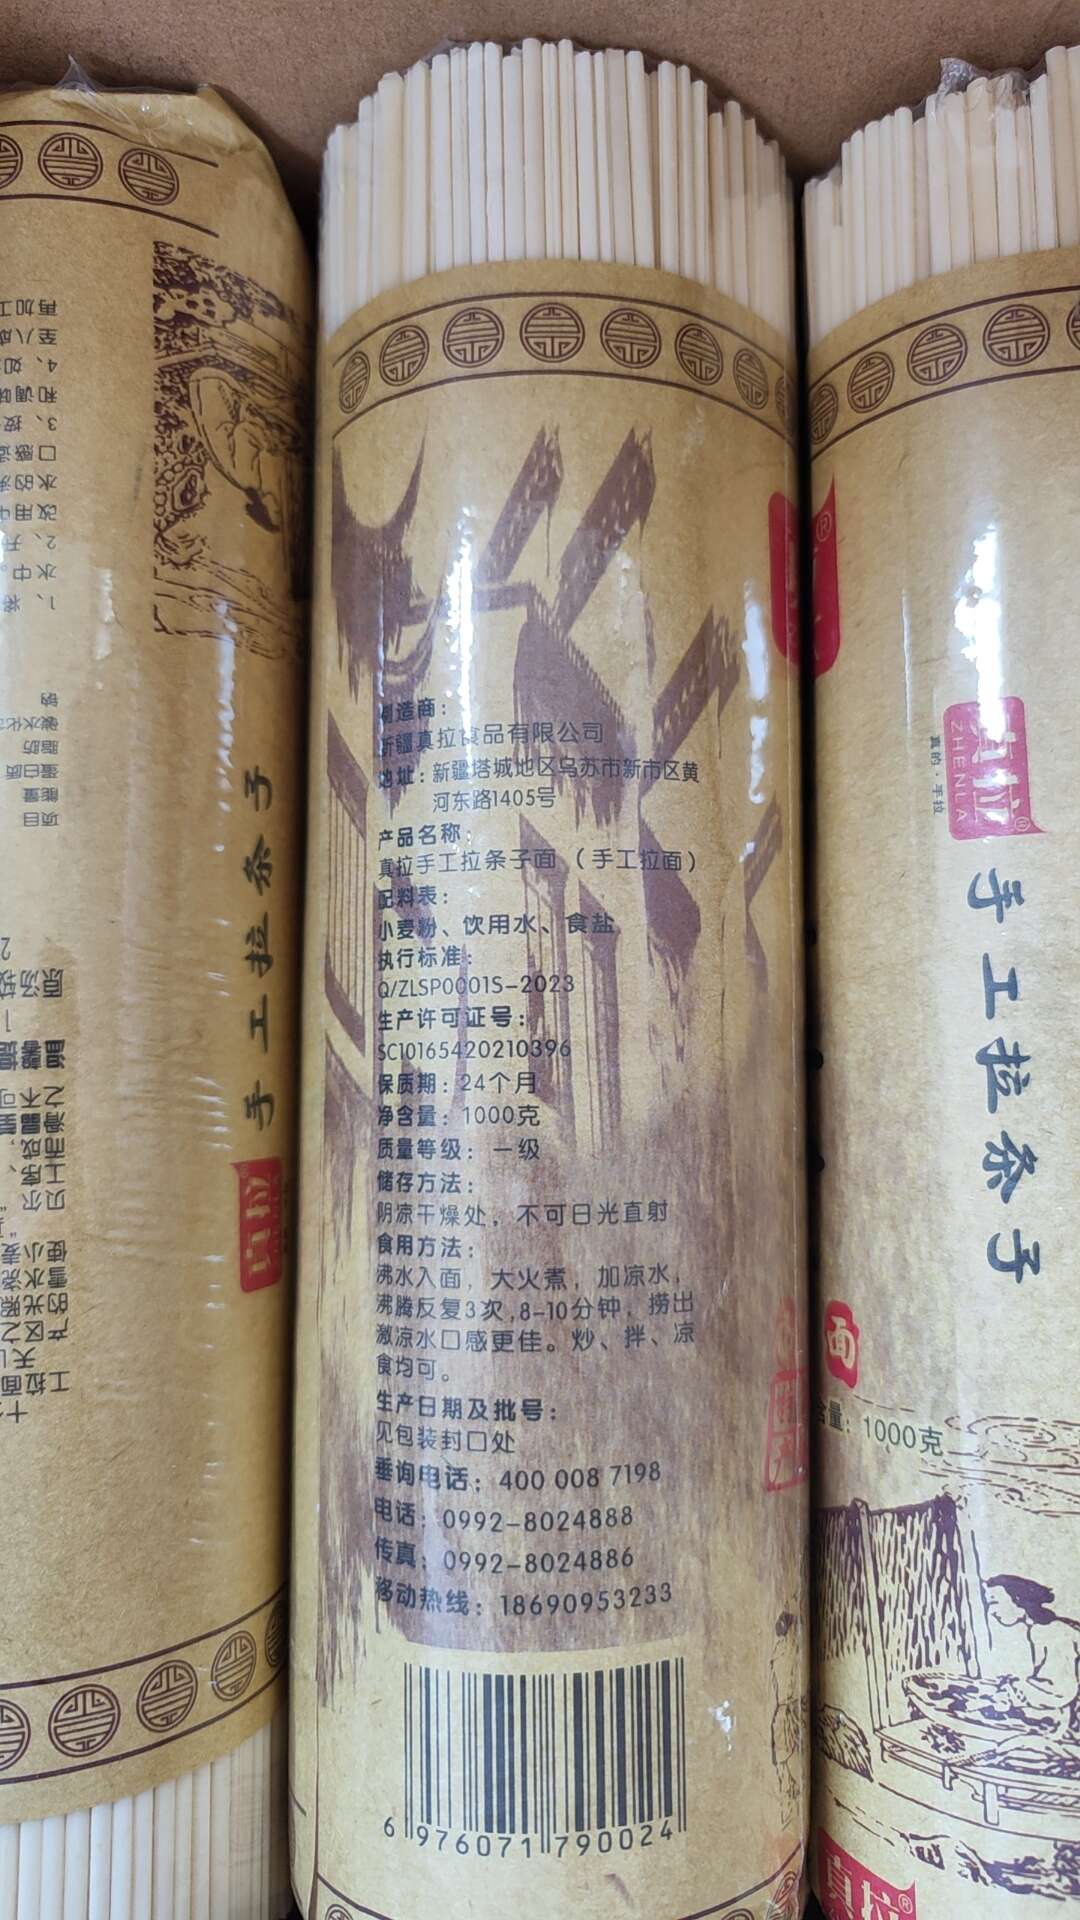 制造商：
新疆真拉食品有限公司
地址：新疆塔城地区乌苏市新市区黄
河东路1405号
产品名称：
真拉手工拉条子面（手工拉面）
配料表：
小麦粉、饮用水、食盐
执行标准：
Q/ZLSP0001S-2023
生产许可证号：
SC10165420210396
保质期：24个月
净含量：1000克
质量等级：一级
储存方法：
阴凉干燥处，不可日光直射
食用方法：
沸水入面，大火煮，加凉水，
沸腾反复3次,8-10分钟，捞出
激凉水口感更佳。炒、拌、凉
食均可。
生产日期及批号：
见包装封口处
垂询电话：400 008 7198
电话：0992-8024888
传真：0992-8024886
移动热线：18690953233
6 976071 790024
真拉®
ZHENLA
真的·手拉
手工拉条子
面
含量：1000克
真拉®
手工拉条子
真拉
项目
能量
蛋白质
脂肪
碳水化
钠
1、将
水中。
2、开
改用中
水的沸
口感适
3、按
和调味
4、如
至八成
再加工
工拉面
天山
产区之
的光照
雪水浇
使小麦
贝尔
工序、
而成，
之不可
温馨提
原汤较